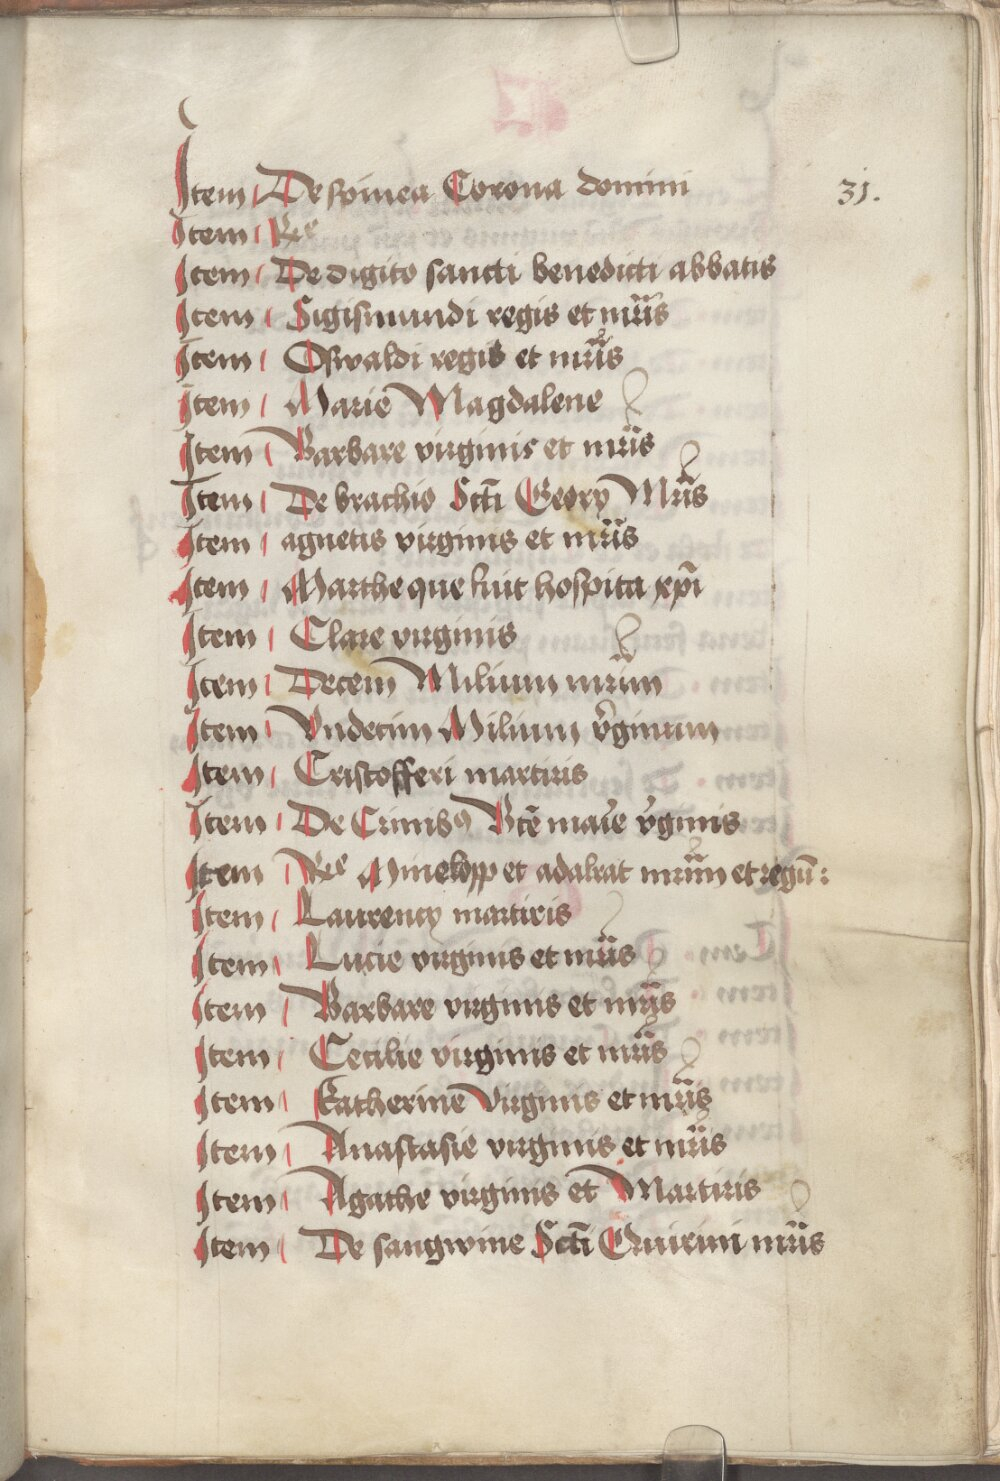 Item De spinea Corona domini
31.
Item Rx
Item De digito sancti benedicti abbatis
Item Sigismundi regis et mris
Item Oswaldi regis et mris
Item Marie Magdalene
Item Barbare virginis et mris
Item De brachio Scti Georij Mris
Item agnetis virginis et mris
Item Marthe que fuit hospita xpi
Item Clare virginis
Item Decem Milium mrim
Item Vndecim Milium v̾ginum
Item Cristofferi martiris
Item De Crinibꝰ Bte marie v̾ginis
Item et adalrat mrum et regu:
Item Laurencij martiris
Item Lucie virginis et mris
Item Barbare virginis et mris
Item Cecilie virginis et mris
Item Katherine Virginis et mris
Item Anastasie virginis et mris
Item Agathe virginis et Martiris
Item De sangwine Scti Quirini mris